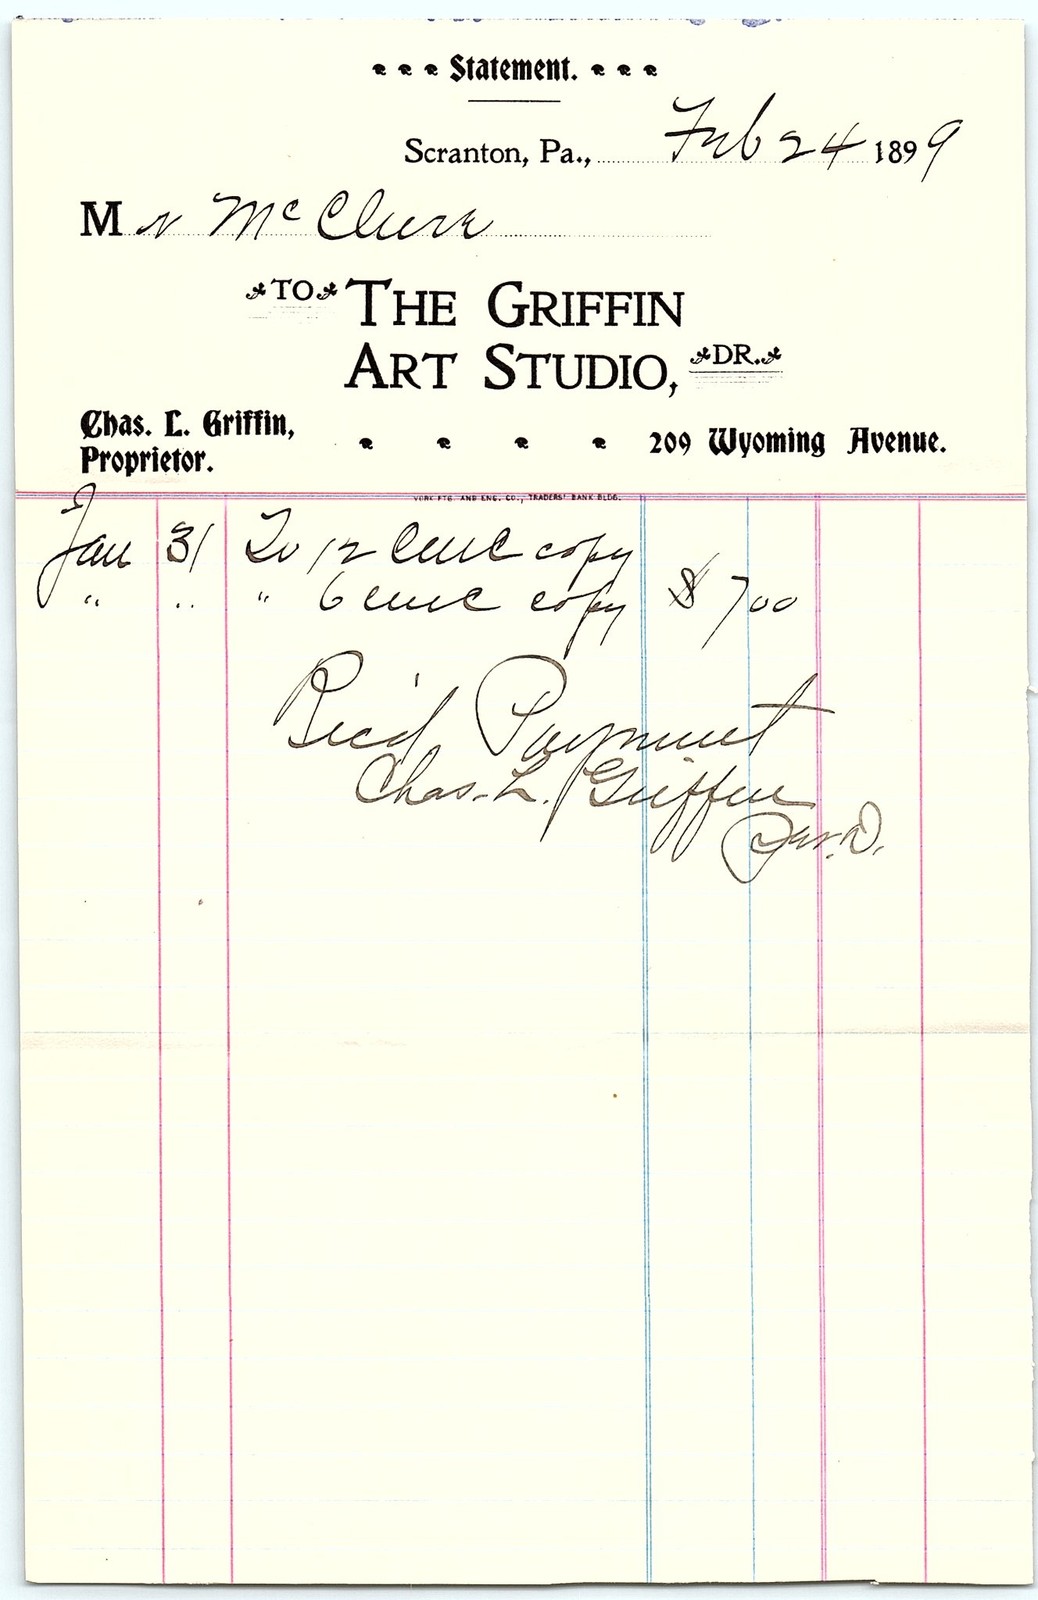 Statement.
Scranton, Pa., Feb 24 1899
Mr McClure
TO THE GRIFFIN
ART STUDIO, DR.
Chas. L. Griffin,
Proprietor.
209 Wyoming Avenue.
YORK PTG. AND ENG. CO., TRADERS' BANK BLDG.
Jan 31 To 12 copy
" " " 6 copy $7.00
Rec'd Payment
Chas. L. Griffin